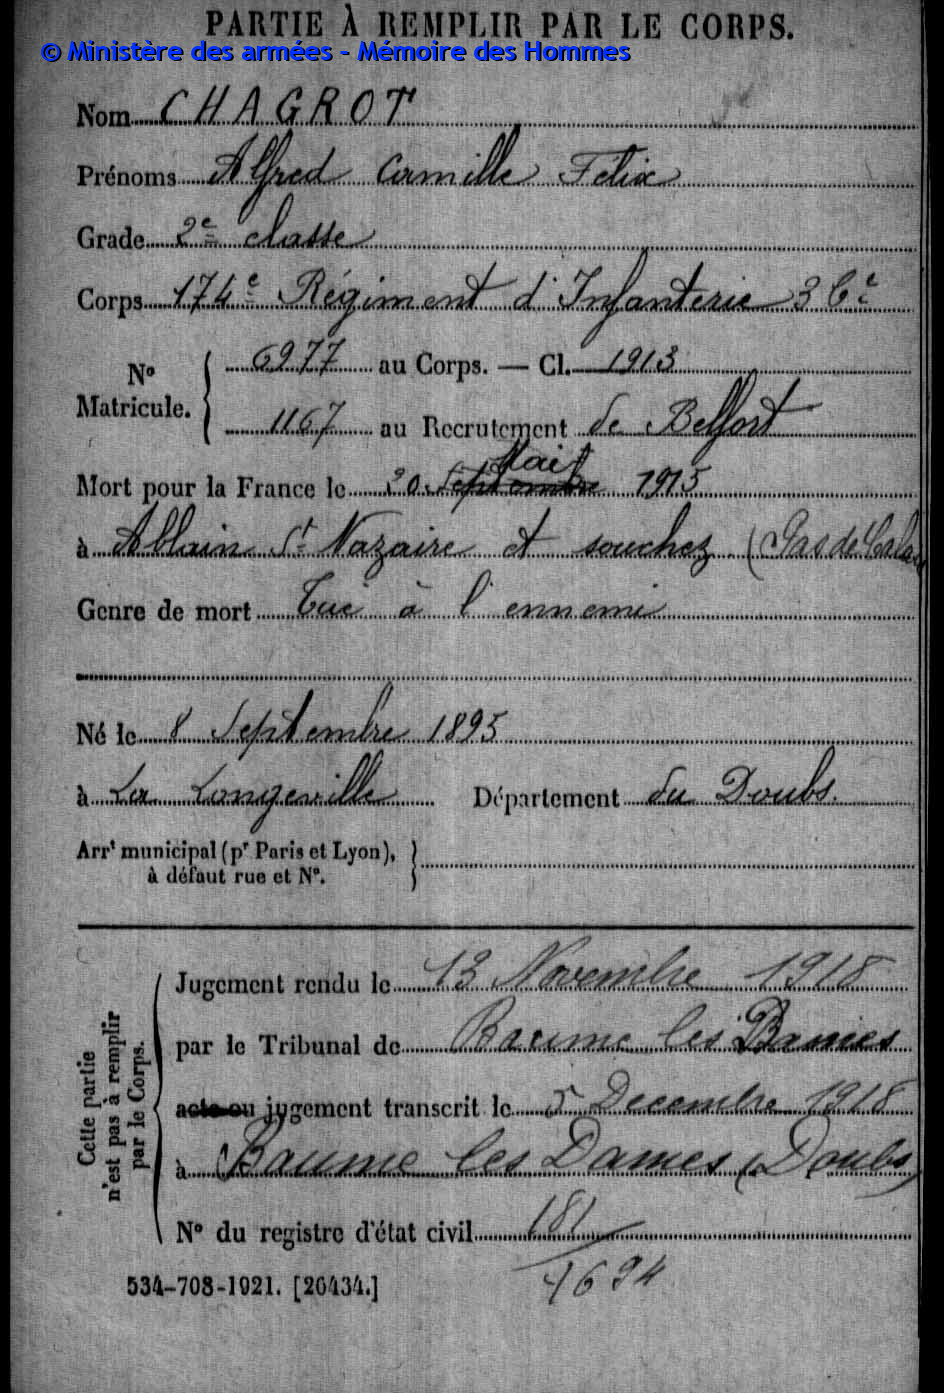 PARTIE À REMPLIR PAR LE CORPS.
© Ministère des armées - Mémoire des Hommes
Nom CHAGROT
Prénoms Alfred Camille Félix
Grade 2e classe
Corps 174e Régiment d'Infanterie 3 Cie
No Matricule. { 6977 au Corps. — Cl. 1913
1167 au Recrutement de Belfort
Mai
Mort pour la France le 30 Septembre 1915
à Ablain St Nazaire et souchez (Pas de Calais
Genre de mort Tué à l'ennemi
Né le 8 Septembre 1895
à La Longeville Département du Doubs.
Arrt municipal (pr Paris et Lyon), }
à défaut rue et No.
Cette partie
n'est pas à remplir
par le Corps.
Jugement rendu le 13 Novembre 1918
par le Tribunal de Baume les Dames
acte ou jugement transcrit le 5 Decembre 1918
à Baume les Dames (Doubs)
No du registre d'état civil 181
1694
534-708-1921. [26434.]